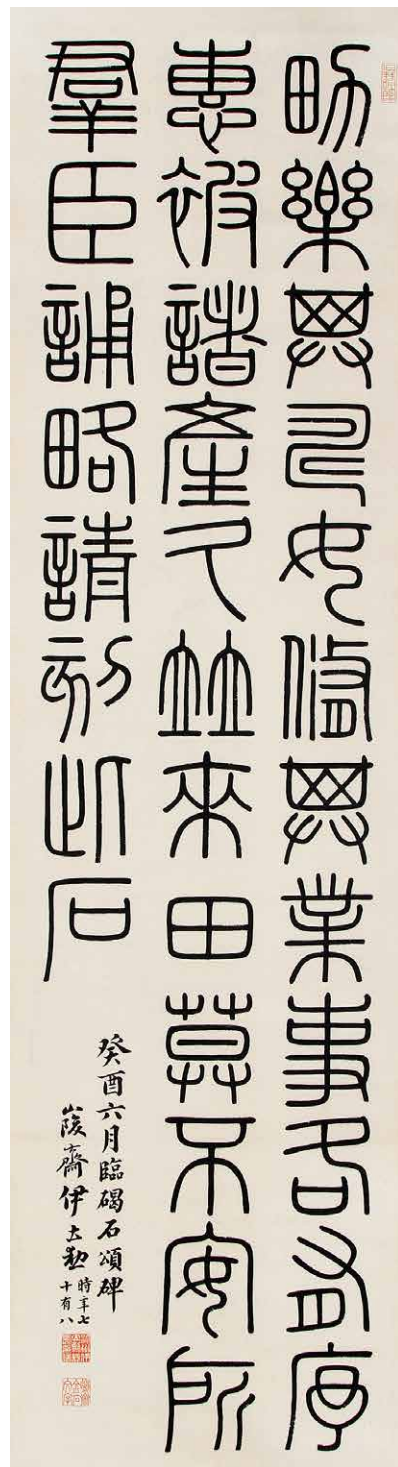 男樂其疇女修其業事各有序
惠被諸產久並來田莫不安所
羣臣誦略請刻此石
癸酉六月臨碣石頌碑
峻齋伊立勳時年七十有八